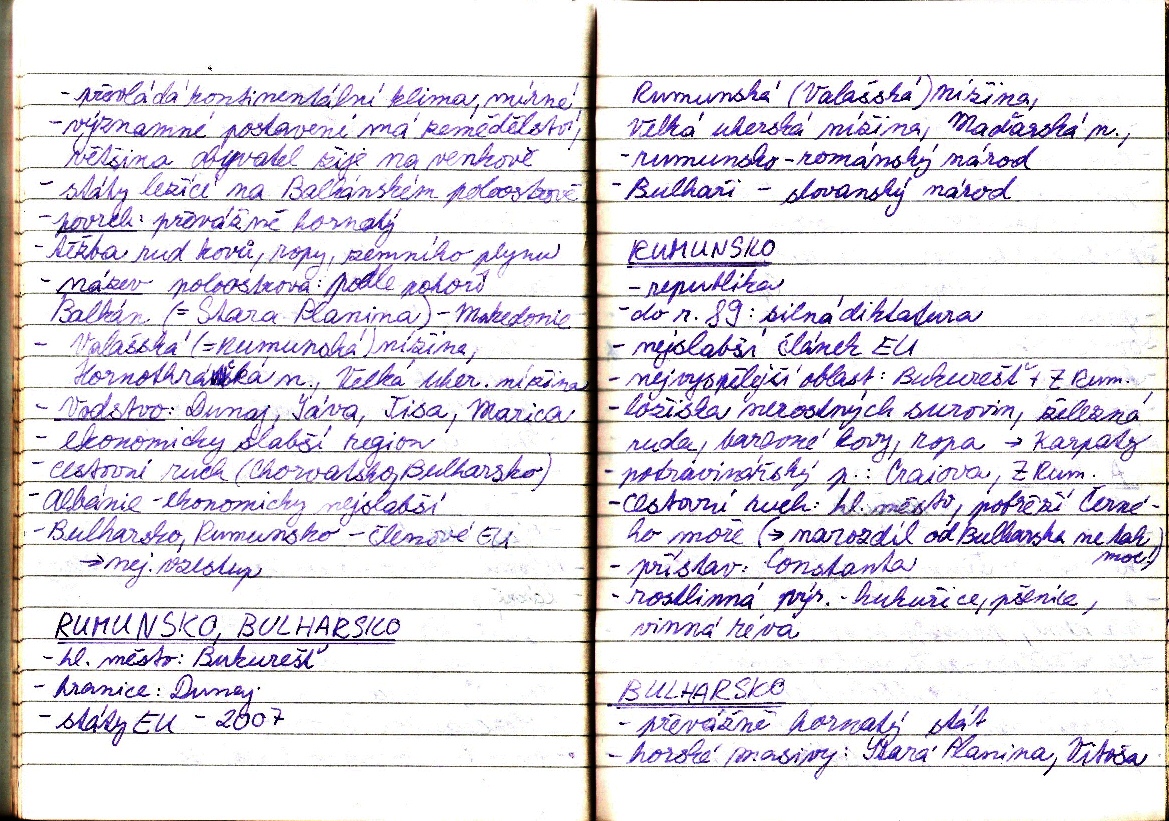 - převládá kontinentální klima, mírné
- významné postavení má zemědělství,
většina obyvatel žije na venkově
- státy ležící na Balkánském poloostrově
- povrch: převážně hornatý
- těžba rud kovů, ropy, zemního plynu
- název poloostrova: podle pohoří
Balkán (= Stara Planina) - Makedonie
- Valašská (= Rumunská) nížina,
Hornothrácká n., Velká uher. nížina
- Vodstvo: Dunaj, Sáva, Tisa, Marica
- ekonomicky slabší region
- cestovní ruch (Chorvatsko, Bulharsko)
- Albánie - ekonomicky nejslabší
- Bulharsko, Rumunsko - členové EU
→ nej. vzestup
RUMUNSKO, BULHARSKO
- hl. město: Bukurešť
- hranice: Dunaj
- státy EU - 2007
Rumunská (Valašská) nížina,
Velká uherská nížina, Maďarská n.,
- rumunsko - románský národ
- Bulhaři - slovanský národ
RUMUNSKO
- republika
- do r. 89: silná diktatura
- nejslabší článek EU
- nejvyspělejší oblast: Bukurešť + Z Rum.
- ložiska nerostných surovin, železná
ruda, barevné kovy, ropa → Karpaty
- potravinářský p.: Craiova, Z Rum.
- Cestovní ruch: hl. město, pobřeží Černé-
ho moře (→ narozdíl od Bulharska ne tak
moc)
- přístav: Constanta
- rostlinná výr. - kukuřice, pšenice,
vinná réva
BULHARSKO
- převážně hornatý stát
- horské masivy: Stará Planina, Vitoša